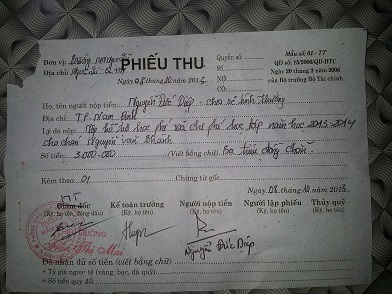 Đơn vị:
Địa chỉ:
PHIẾU THU
Ngày 08 tháng 10 năm 2013
Quyển số:
Số:
NỢ:
CÓ:
Mẫu số 01 - TT
QĐ số: 15/2006/QĐ-BTC
Ngày 20 tháng 3 năm 2006
của Bộ trưởng Bộ Tài chính
Họ, tên người nộp tiền: Nguyễn Đức Diệp -
Địa chỉ: TP Nam Định
Lý do nộp: Nộp hỗ trợ học phí và chi phí học tập năm học 2013-2014
cho cháu Nguyễn Văn Khanh
Số tiền: 3.000.000 (Viết bằng chữ) Ba triệu đồng chẵn
Kèm theo 01 Chứng từ gốc.
Ngày 08 tháng 10 năm 2013
Giám đốc Kế toán trưởng Người nộp tiền Người lập phiếu Thủy quỹ
(Ký, họ tên, đóng dấu) (Ký, họ tên) (Ký, họ tên) (Ký, họ tên) (Ký, họ tên)
Thị Mai
Nguyễn Đức Diệp
Đã nhận đủ số tiền (viết bằng chữ)
+ Tỷ giá ngoại tệ (vàng, bạc, đá quý)
+ Số tiền quy đổi